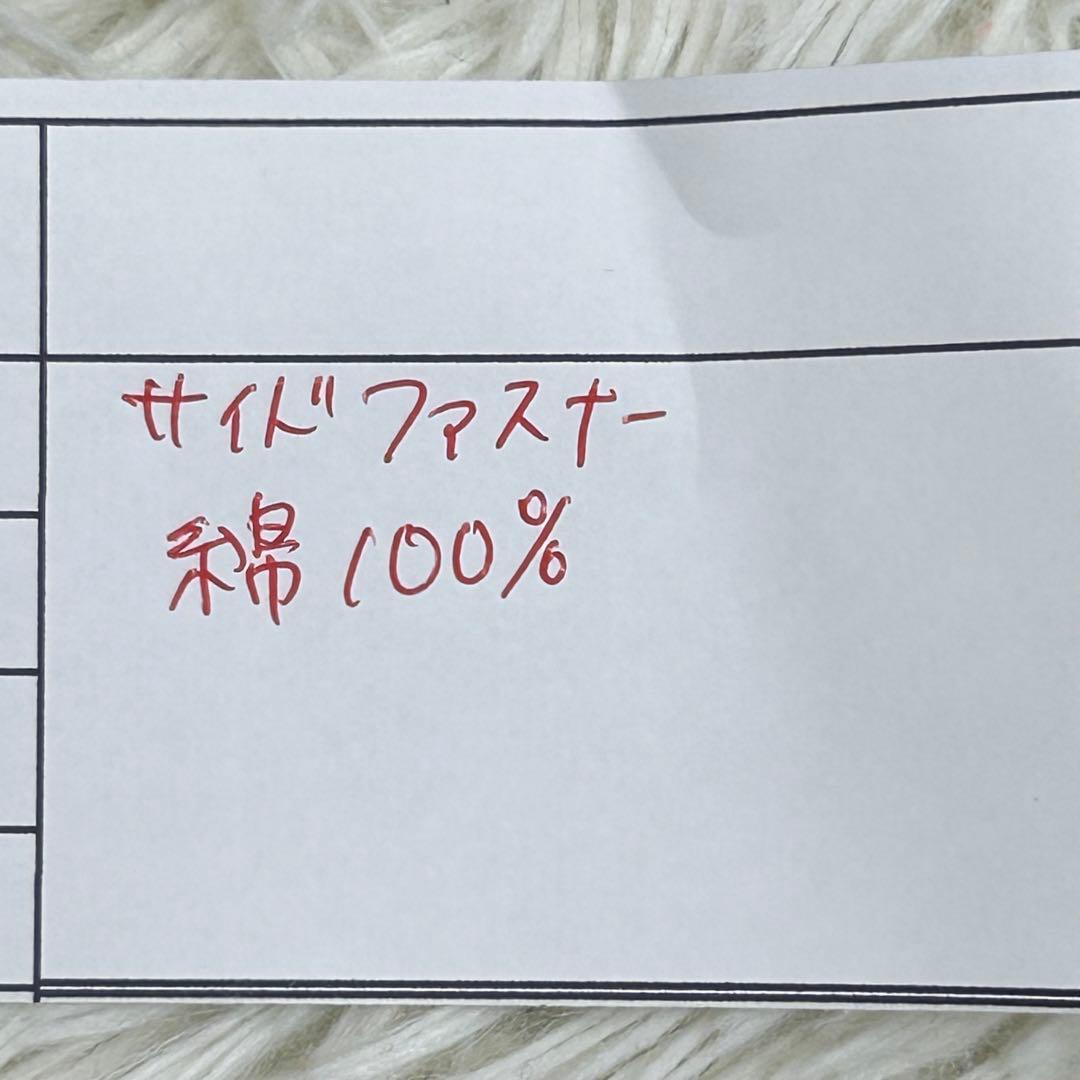 サイドファスナー
綿100%